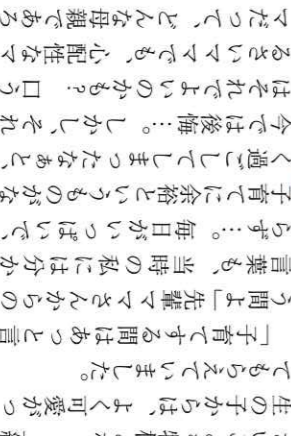 生の子からは、よく可愛がっ
てもらえていました。
「子育てする間はあっと言
う間よ」先輩ママさんからの
言葉も、当時の私には分か
らず…。毎日がいっぱいで、
子育てに余裕というものがな
く過ごしてしまったなあと、
今では後悔…。しかし、それ
はそれでよいのかも？　口う
るさいママでも、心配性なマ
マだって、どんな母親である